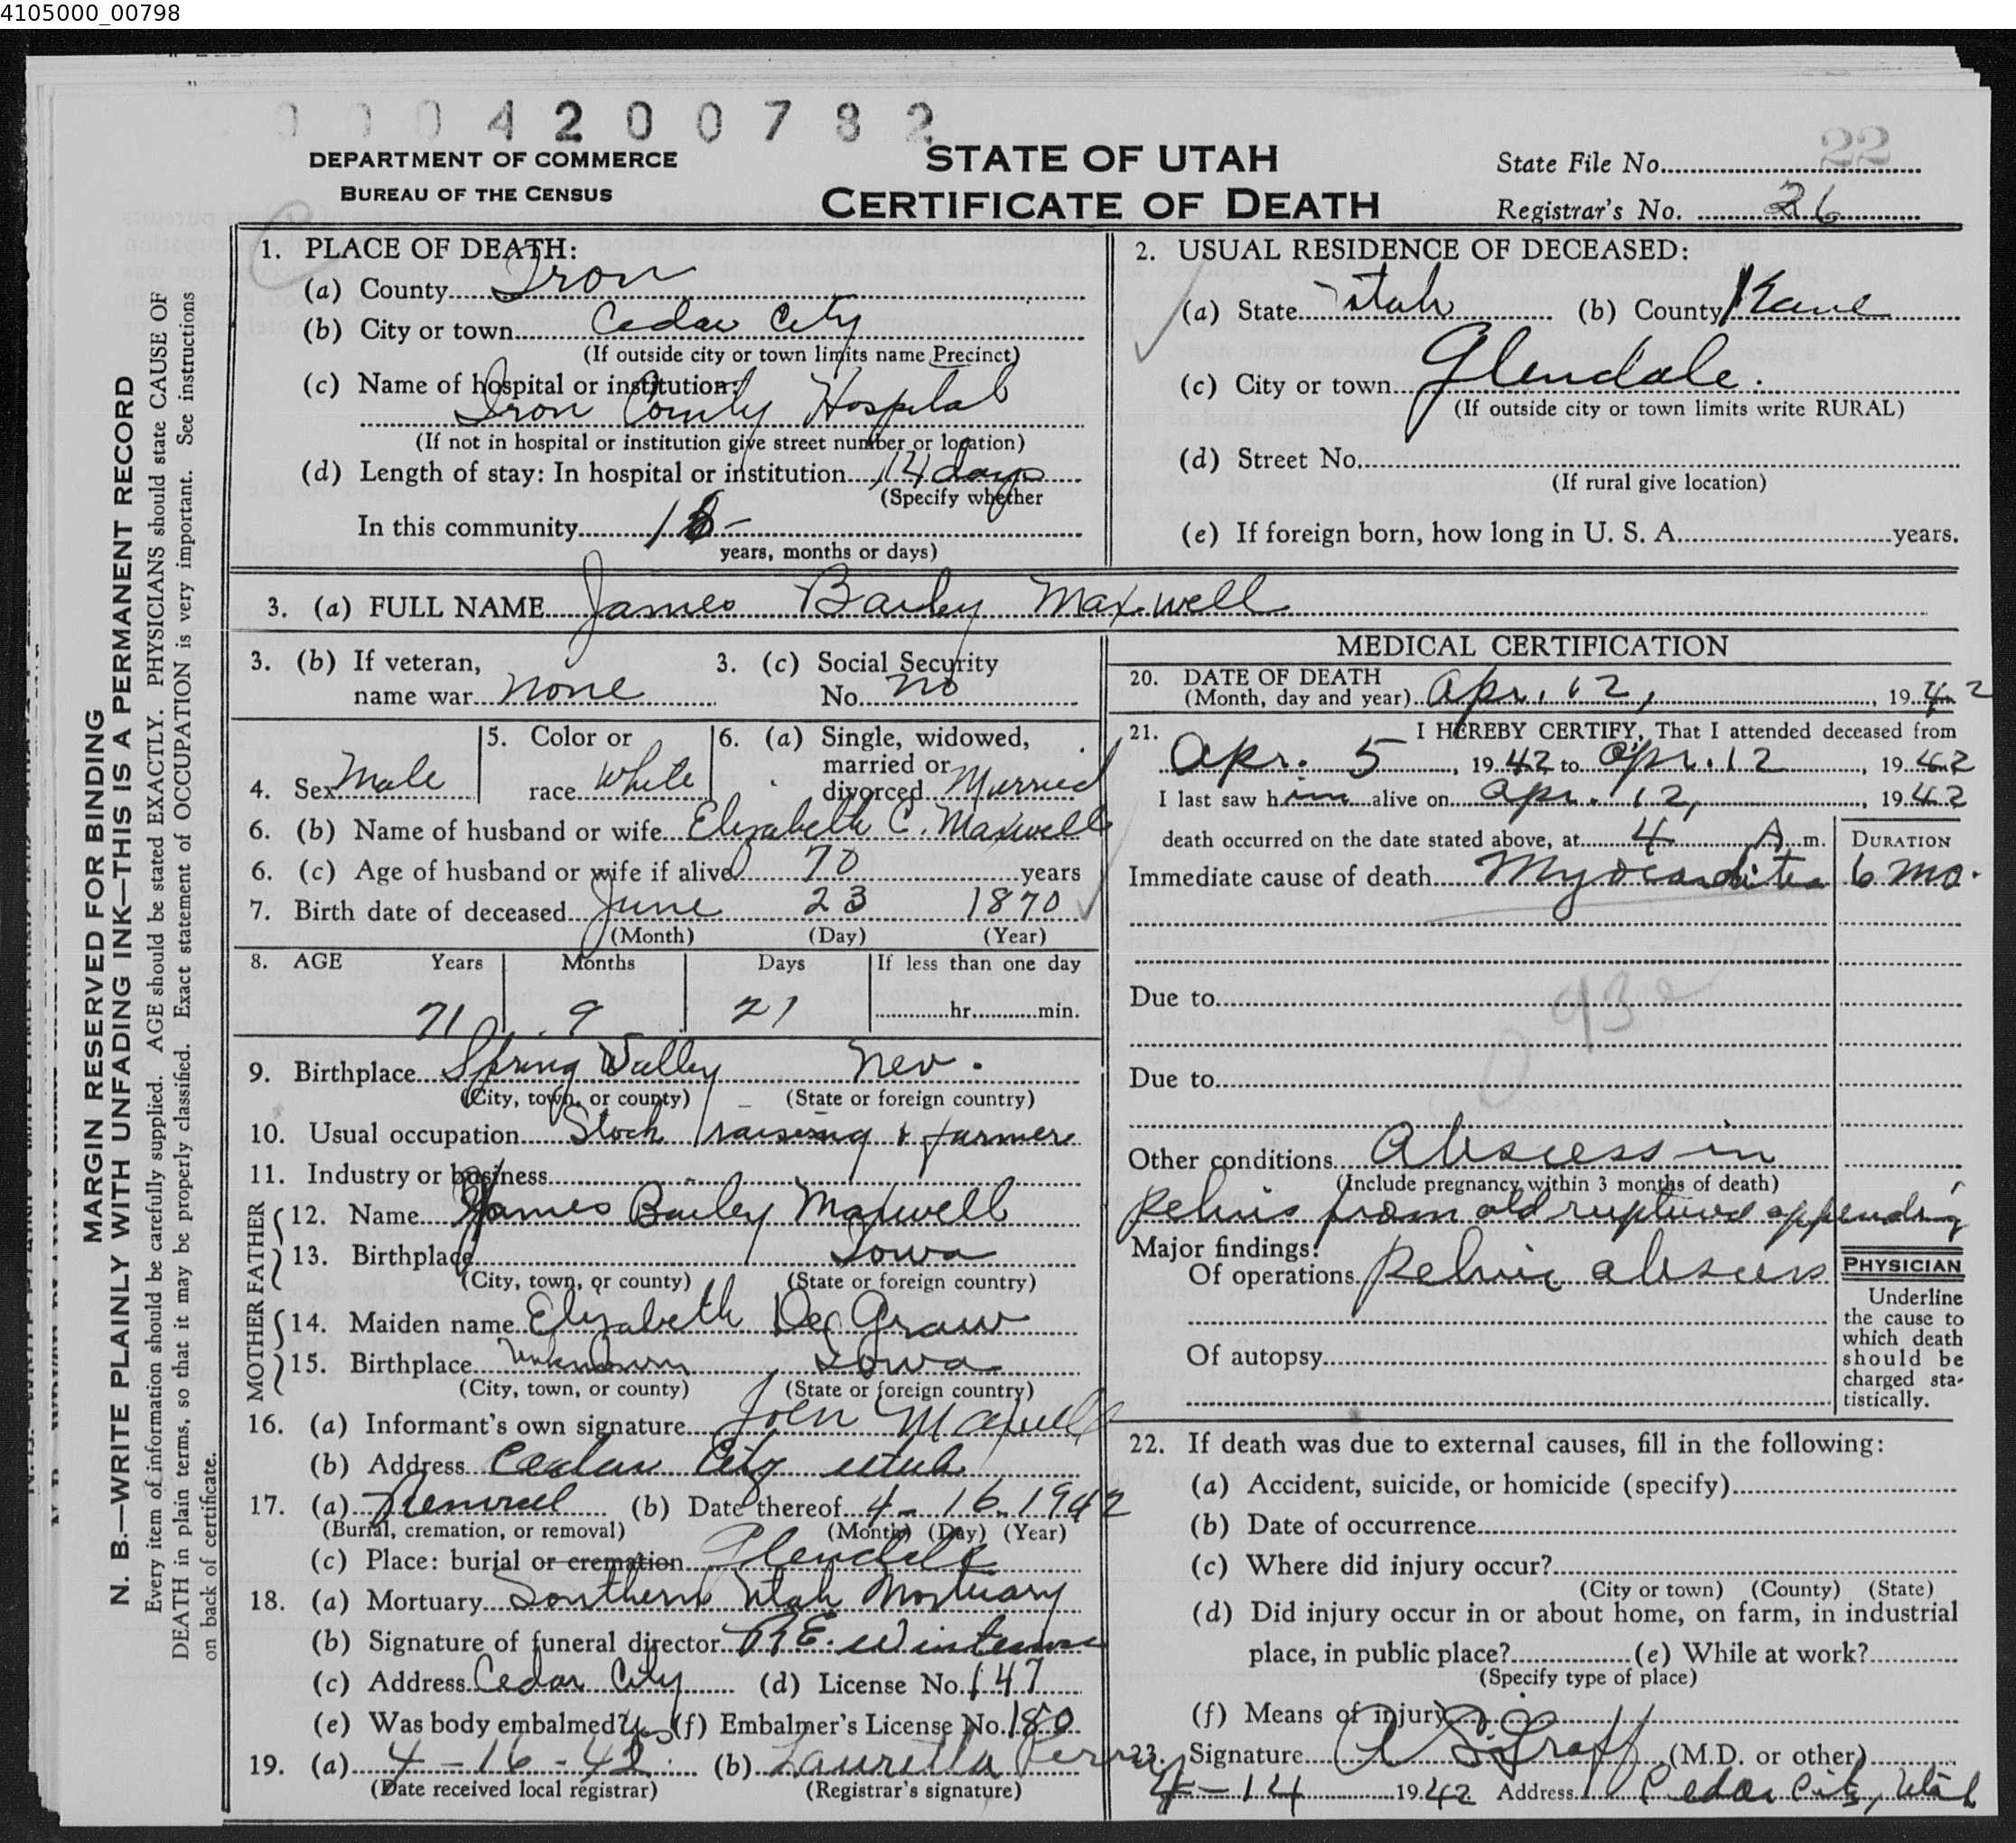 4105000_00798
0004200782
DEPARTMENT OF COMMERCE
BUREAU OF THE CENSUS
STATE OF UTAH
CERTIFICATE OF DEATH
State File No. 22
Registrar's No. 26
MARGIN RESERVED FOR BINDING
N. B.—WRITE PLAINLY WITH UNFADING INK—THIS IS A PERMANENT RECORD
Every item of information should be carefully supplied. AGE should be stated EXACTLY. PHYSICIANS should state CAUSE OF
DEATH in plain terms, so that it may be properly classified. Exact statement of OCCUPATION is very important. See instructions
on back of certificate.
1. PLACE OF DEATH:
(a) County Iron
(b) City or town Cedar City
(If outside city or town limits name Precinct)
(c) Name of hospital or institution:
Iron County Hospital
(If not in hospital or institution give street number or location)
(d) Length of stay: In hospital or institution 14 days
(Specify whether
In this community
years, months or days)
2. USUAL RESIDENCE OF DECEASED:
(a) State Utah (b) County Kane
(c) City or town Glendale.
(If outside city or town limits write RURAL)
(d) Street No.
(If rural give location)
(e) If foreign born, how long in U. S. A. years.
3. (a) FULL NAME James Bailey Maxwell
3. (b) If veteran,
name war none
3. (c) Social Security
No. no
4. Sex Male
5. Color or
race White
6. (a) Single, widowed,
married or
divorced Married
6. (b) Name of husband or wife Elizabeth C. Maxwell
6. (c) Age of husband or wife if alive 70 years
7. Birth date of deceased June 23 1870
(Month) (Day) (Year)
8. AGE Years Months Days If less than one day
71 9 21 hr. min.
9. Birthplace Spring Valley Nev.
(City, town, or county) (State or foreign country)
10. Usual occupation Stock raising & farmer
11. Industry or business
FATHER
12. Name James Bailey Maxwell
13. Birthplace Iowa
(City, town, or county) (State or foreign country)
MOTHER
14. Maiden name Elizabeth De Graw
15. Birthplace Unknown Iowa
(City, town, or county) (State or foreign country)
16. (a) Informant's own signature Maxwell
(b) Address Cedar City Utah
17. (a) Removal (b) Date thereof 4-16-1942
(Burial, cremation, or removal) (Month) (Day) (Year)
(c) Place: burial or cremation Glendale
18. (a) Mortuary Southern Utah Mortuary
(b) Signature of funeral director
(c) Address Cedar City (d) License No. 147
(e) Was body embalmed? Yes (f) Embalmer's License No. 180
19. (a) 4-16-42 (b) Lauretta Perry
(Date received local registrar) (Registrar's signature)
MEDICAL CERTIFICATION
20. DATE OF DEATH
(Month, day and year) Apr. 12, 1942
21. I HEREBY CERTIFY, That I attended deceased from
Apr. 5, 1942 to Apr. 12, 1942
I last saw him alive on Apr. 12, 1942
death occurred on the date stated above, at 4 A. m.
DURATION
Immediate cause of death Myocarditis 6 mo.
Due to
93
Due to
Other conditions Abscess in
(Include pregnancy within 3 months of death)
Pelvis from old ruptured
Major findings:
Of operations Pelvic abscess
Of autopsy
PHYSICIAN
Underline
the cause to
which death
should be
charged sta-
tistically.
22. If death was due to external causes, fill in the following:
(a) Accident, suicide, or homicide (specify)
(b) Date of occurrence
(c) Where did injury occur?
(City or town) (County) (State)
(d) Did injury occur in or about home, on farm, in industrial
place, in public place? (e) While at work?
(Specify type of place)
(f) Means of injury
23. Signature Graff (M.D. or other)
4-14 1942 Address Cedar City, Utah